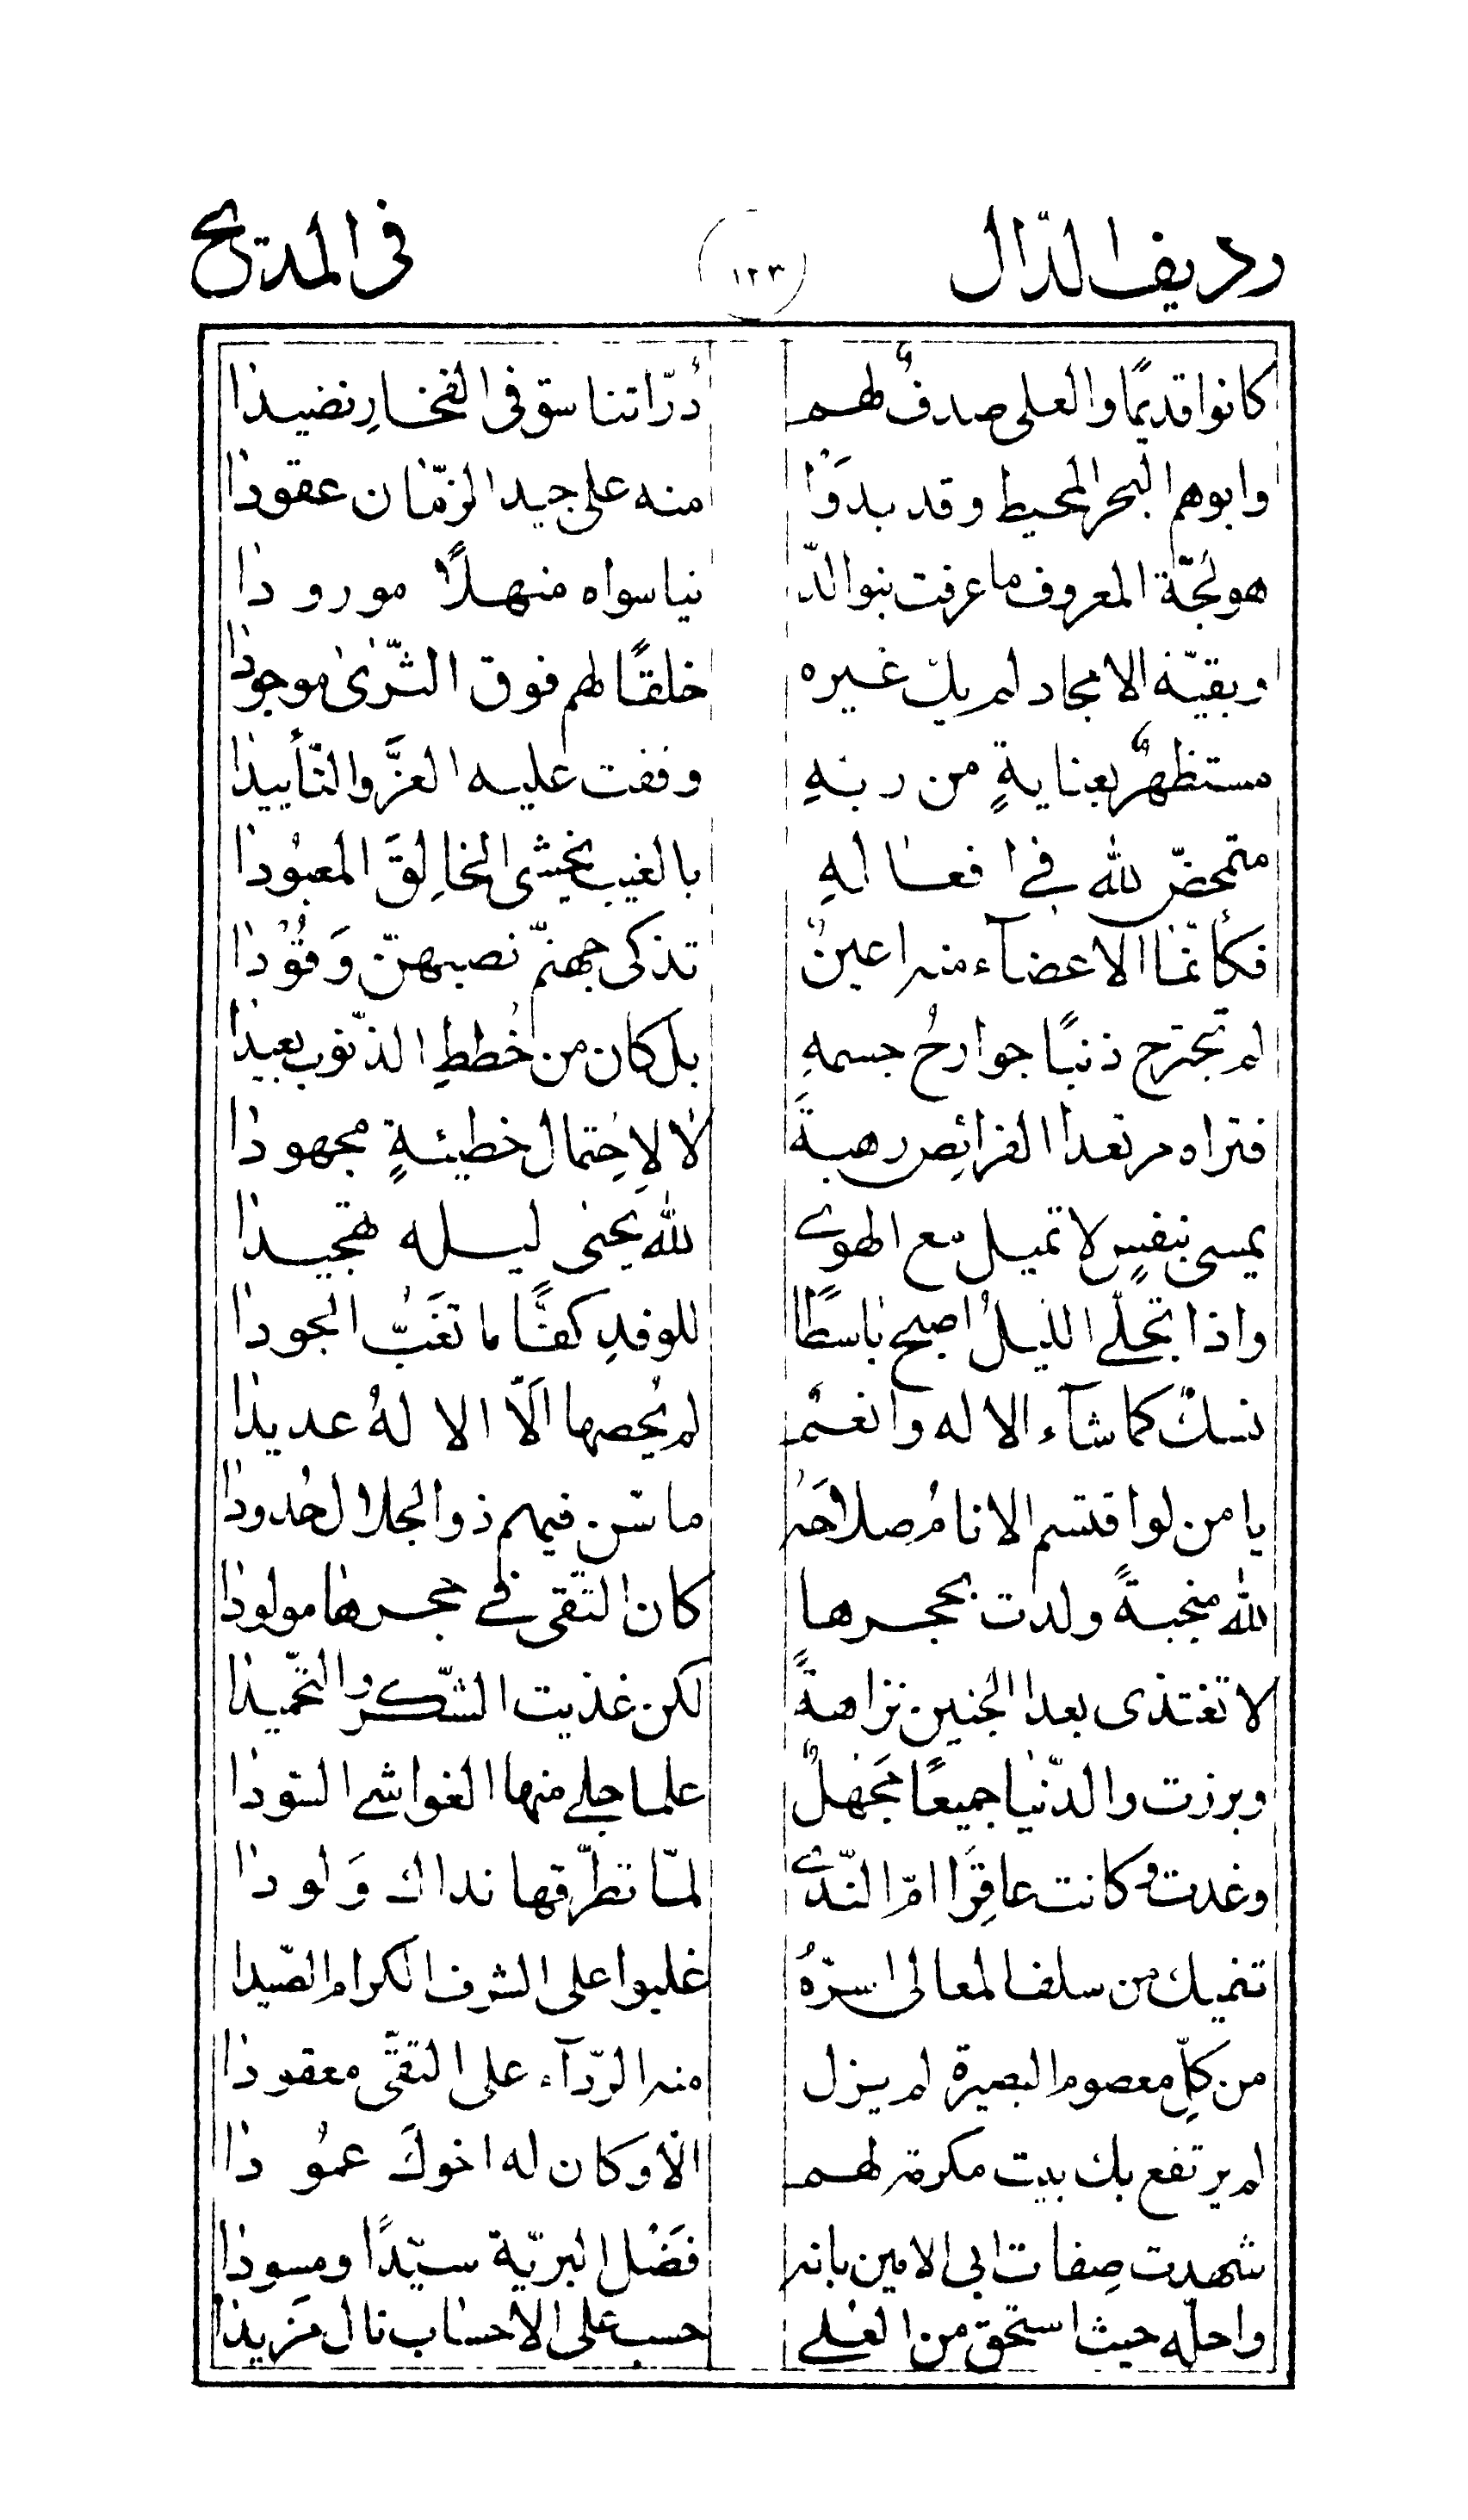 رديف الدّال (١٢٣) فى المديح
كانوا قديمًا والعلى صدفٌ لهم دُرّا تناسق فى الفخارِ نضيدا
وابوهم البحر المحيط وقد بدَوْا منه على جيد الزّمان عقودا
هو لجّة المعروف ما عرفت بنو الدّ نيا سواه منهلاً مورودا
وبقيّة الامجاد لم يك غيره خلقًا لهم فوق الثّرىٰ موجودا
مستظهرٌ بعنايةٍ من ربهِ وقفت عليه العزَّ والتّأييدا
متمحضّ لله في افعالهِ بالغيب يخشى الخالِقَ المعبُودا
فكأنّما الاعضآء منه اعينٌ تذكى جهنمّ نصبهنّ وَقُوْدا
لم تجترح ذنبًا جوارحُ جسمهِ بل كان من خُططِ الذّنوب بعيدا
فتراه مرتعد الفرائِص رهبةً لا لاِحتمال خطيئةٍ مجهودا
يمسى بنفسٍ لا تميل مع الهوى لله يحيى ليله تهجيدا
واذا تجلّى الليلُ اصبح باسطًا للوفدِ كفًّا ما تغَبُّ الجودا
نسكٌ كما شآء الاله وانعم لم يُحصها الّا الالهُ عديدا
يا من لو اقتسم الانامُ صلاحَه ما سنّ فيهم ذو الجلال حُدودا
لله منجبةً ولدت بحجرها كان التّقى في حجرها مولودا
لا تغتذى بعد الجنين نزاهةً لكن غذيت الشّكر والتّحميدا
وبرزت والدّنيا جميعًا مَجهلٌ علما جلى منها الغواشى السّودا
وغدت وكانت عاقِرًا امّ النّدى لمّا تطرّقها نداك وَلودا
تنميك من سلف المعالى اسرَةٌ غلبوا على الشرف الكرام الصّيدا
من كلّ معصوم البصيرة لم يزل منه الرّدآء على التقىّ معقودا
لم يرتفع بك بيت مكرمة لهم الّا وكان له اخوكَ عمُودا
شهدت صِفات ابى الامين بانه فضَل البريّة سيّدًا ومسودا
واحلّه حيث استحقّ من العُلى حسب على الاحساب نال مَزيدا